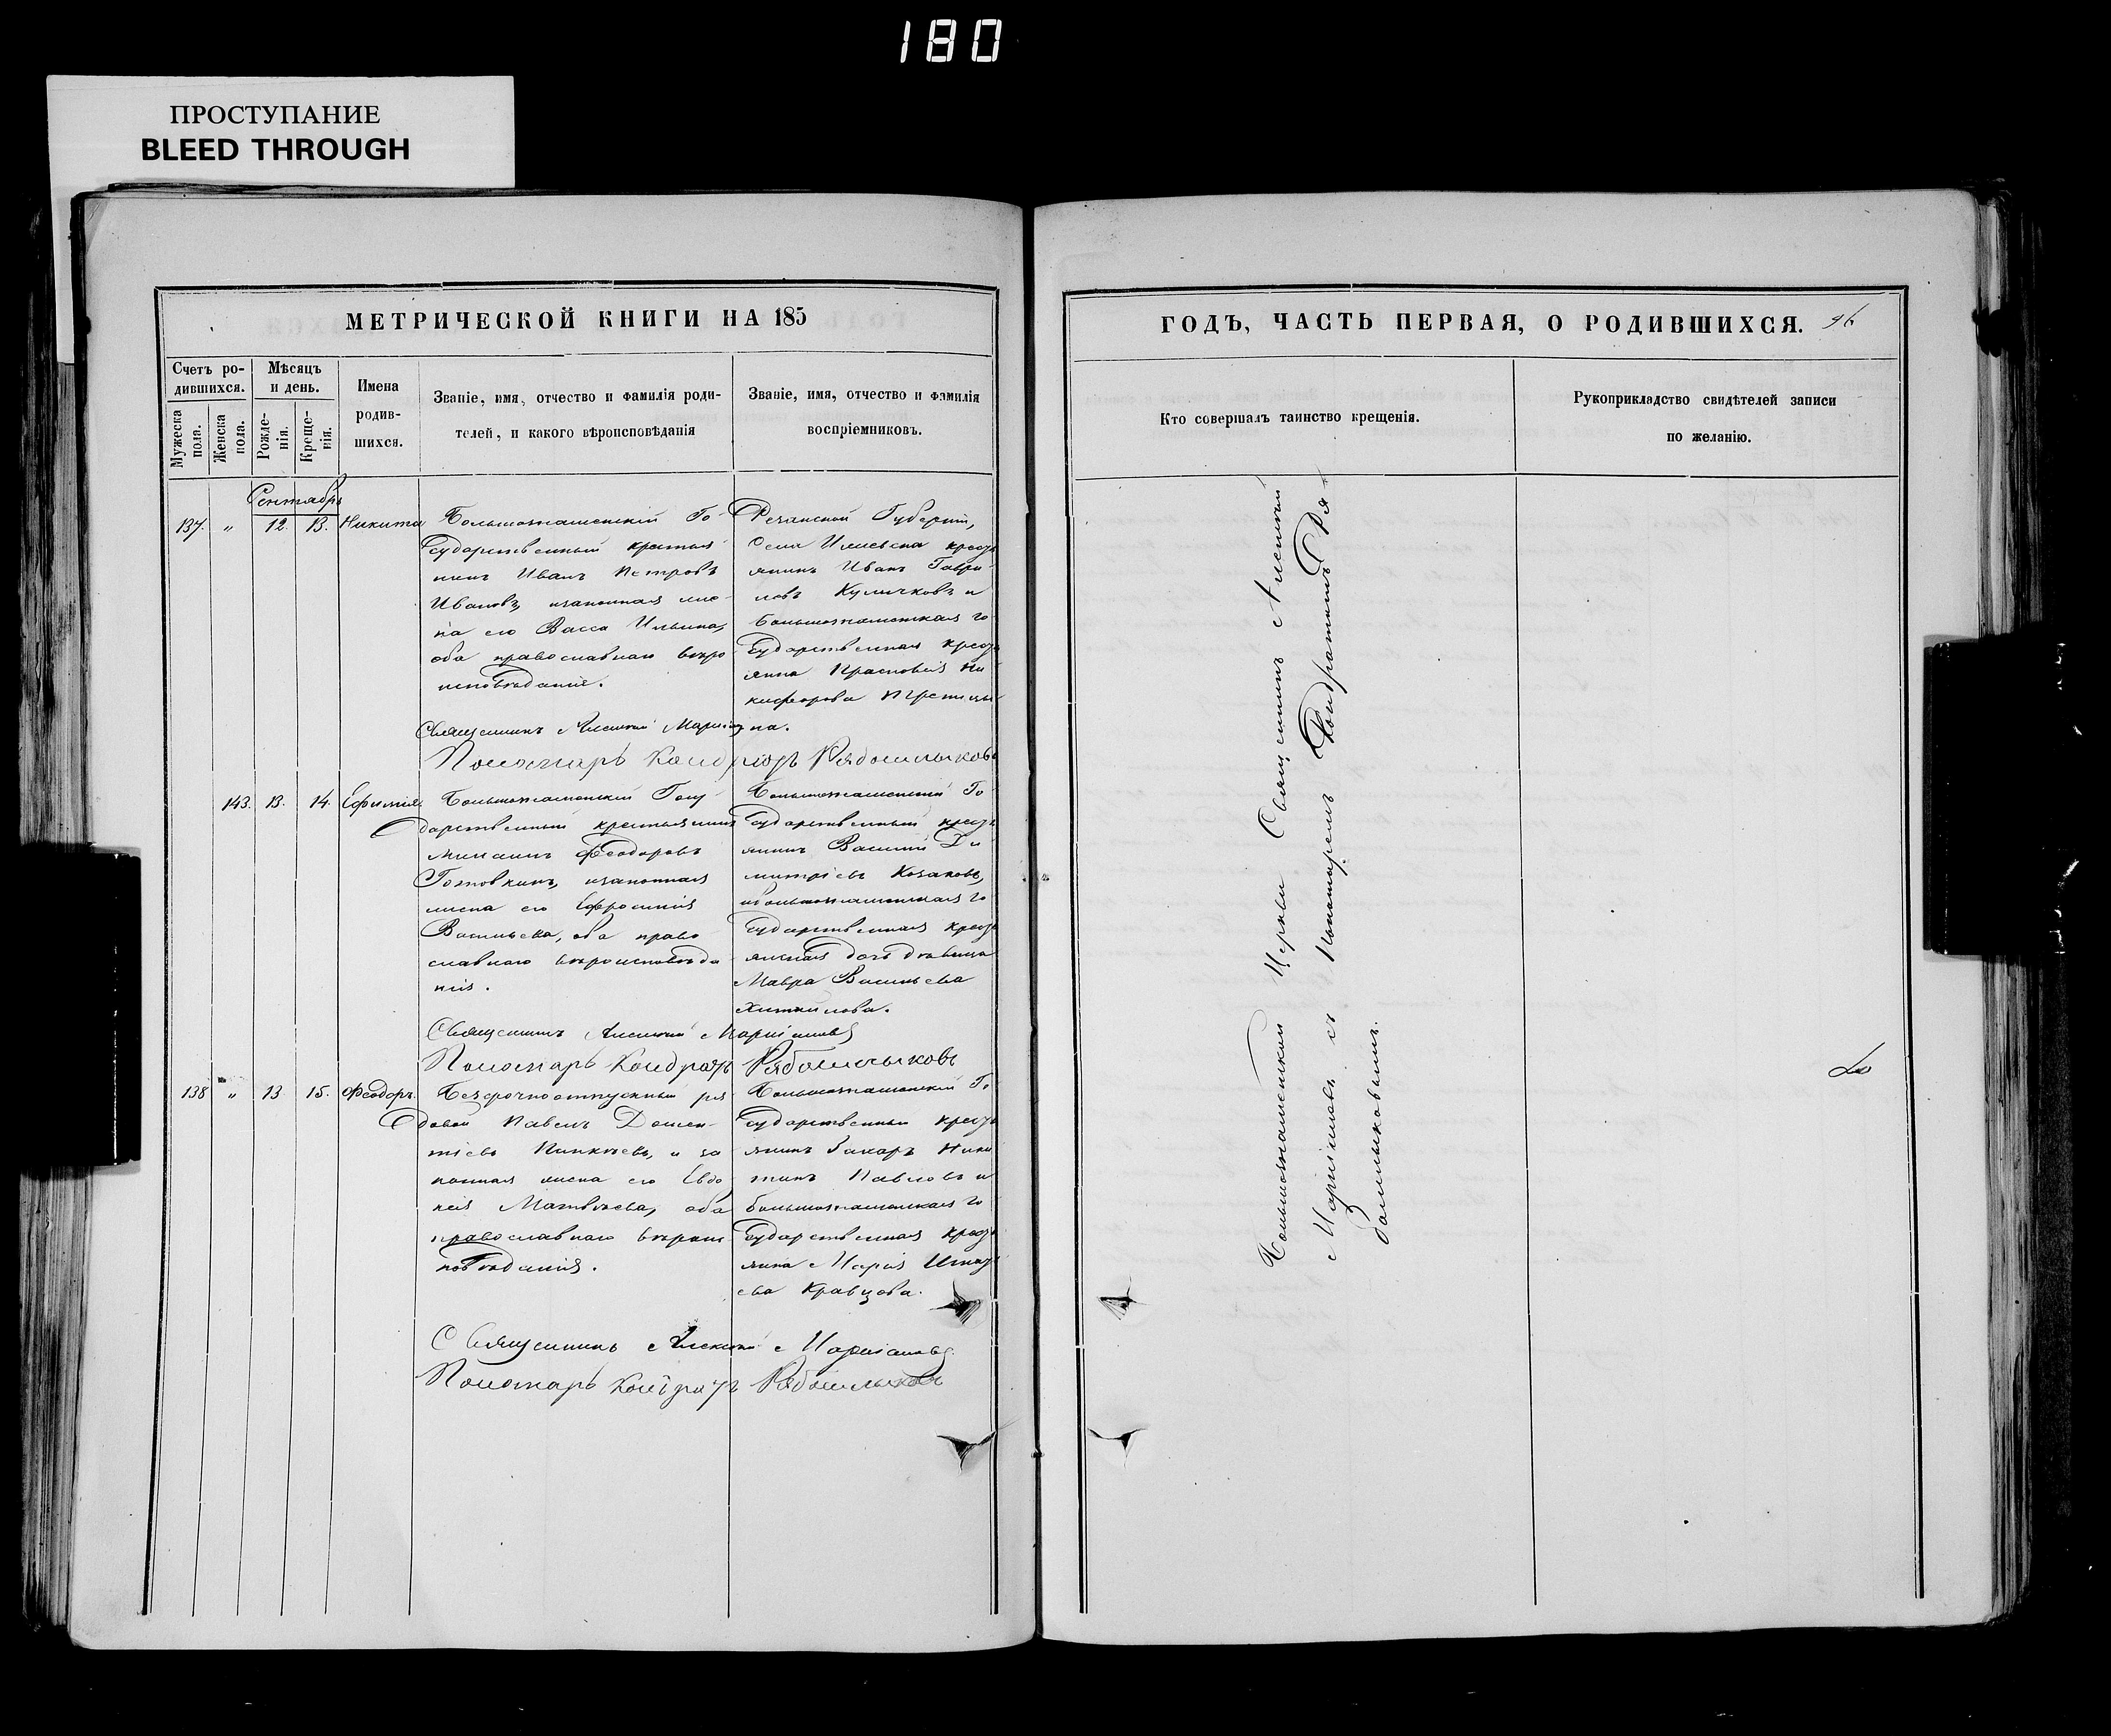 180
ПРОСТУПАНИЕ
BLEED THROUGH
МЕТРИЧЕСКОЙ КНИГИ НА 185
Счетъ ро-
дившихся.
Мужеска
пола.
Женска
пола.
Мѣсяцъ
и день.
Рожде-
нія.
Креще-
нія.
Имена
родив-
шихся.
Званіе, имя, отчество и фамилія роди-
телей, и какого вѣроисповѣданія
Званіе, имя, отчество и фамилія
воспріемниковъ.
Сентябрь
137. " 12. 13. Никита
Большознаменскій Го-
сударственный крестья
нинъ Иванъ Петровъ
Ивановъ, изаконная же-
на его Васса Ильина,
оба православнаго вѣро
исповѣданія.
Резанской Губерніи,
Села крестъ
янинъ Иванъ Гаври-
ловъ Куличковъ и
большознаменская го
сударственная крестъ
янка Прасковія Ни
кифорова
на.
Священникъ Алексій
Пономарь Кондратъ Рябошлыковъ
143. 13. 14. Ефимія
Большознаменскій Госу
дарственный крестьянинъ
Михаилъ Феодоровъ
Готовкинъ, изаконная
жена его Ефросинія
Васильева, оба право
славнаго вѣроисповѣда
нія.
Большознаменскій Го
сударственный крестъ
янинъ Василій Ди
митріевъ Козаковъ,
ибольшознаменская го
сударственная крестъ
янская дочь дѣвица
Мавра Васильева
Священникъ Алексій
Пономарь Кондратъ Рябошлыковъ
138 " 13. 15. Феодоръ.
Безсрочноотпускный ря
довой Павелъ Демен-
тіевъ и за
конная жена его Евдо
кія Матвѣева, оба
православнаго вѣроис
повѣданія.
Большознаменскій Го
сударственный крестъ
янинъ Захаръ Ники
тинъ Павловъ и
большознаменская го
сударственная крестъ
янка Марія Игнать
ева Кравцова.
Священникъ Алексій
Пономарь Кондратъ Рябошлыковъ
ГОДЪ, ЧАСТЬ ПЕРВАЯ, О РОДИВШИХСЯ. 96
Кто совершалъ таинство крещенія.
Рукоприкладство свидѣтелей записи
по желанію.
Большознаменской Церкви Священникъ Алексій
съ Пономаремъ Кондратомъ Ря-
бошлыковымъ.